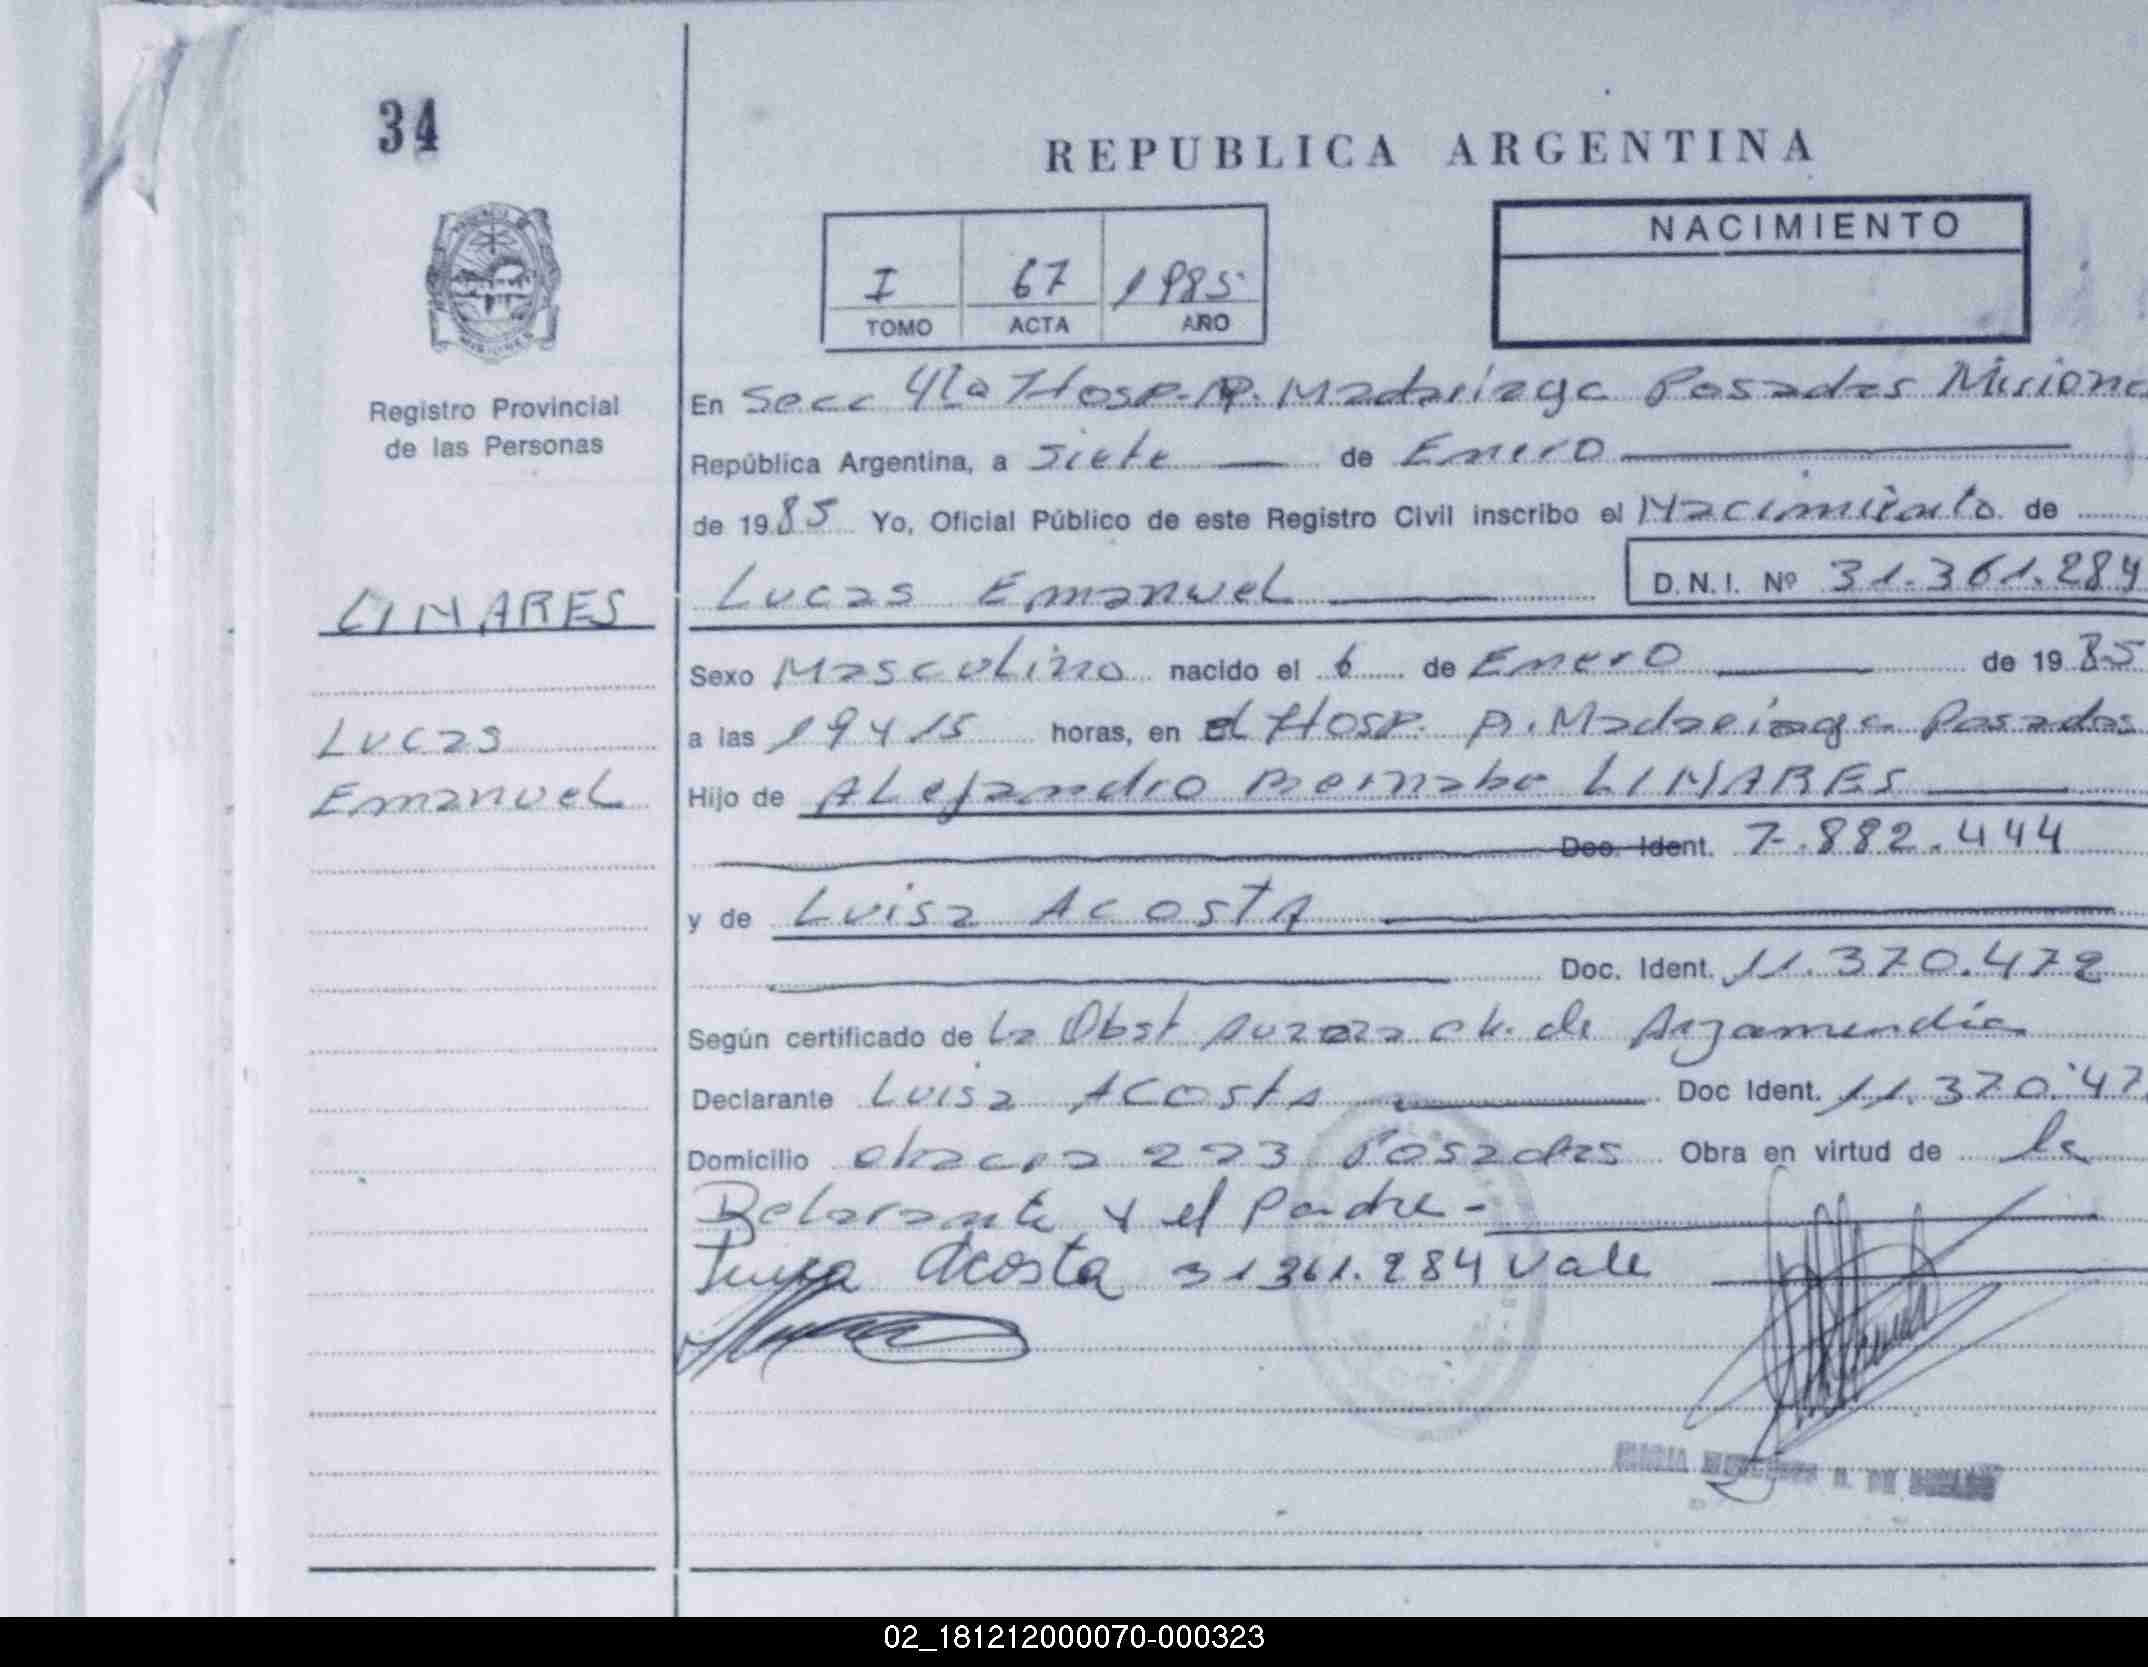 34
REPUBLICA ARGENTINA
NACIMIENTO
I 67 1985
TOMO ACTA AÑO
Registro Provincial
de las Personas
En Secc 4ta Hosp. R. Madariaga Posadas Misione
República Argentina, a Siete de Enero
de 1985 Yo, Oficial Público de este Registro Civil inscribo el Nacimiento de
Lucas Emanuel D.N.I. Nº 31.361.284
LINARES
Lucas
Emanuel
Sexo Masculino nacido el 6 de Enero de 1985
a las 19 y 15 horas, en el Hosp. R. Madariaga Posadas
Hijo de ALejandro Bernabe LINARES
Doc. Ident. 7.882.444
y de Luisa Acosta
Doc. Ident. 11.370.472
Según certificado de La Obst de Arzamendia
Declarante Luisa Acosta Doc Ident. 11.370.47
Domicilio chacra 223 Posadas Obra en virtud de la
Declarante y el Padre-
Luisa Acosta 31361.284 Vale
MARIA DE
02_181212000070-000323